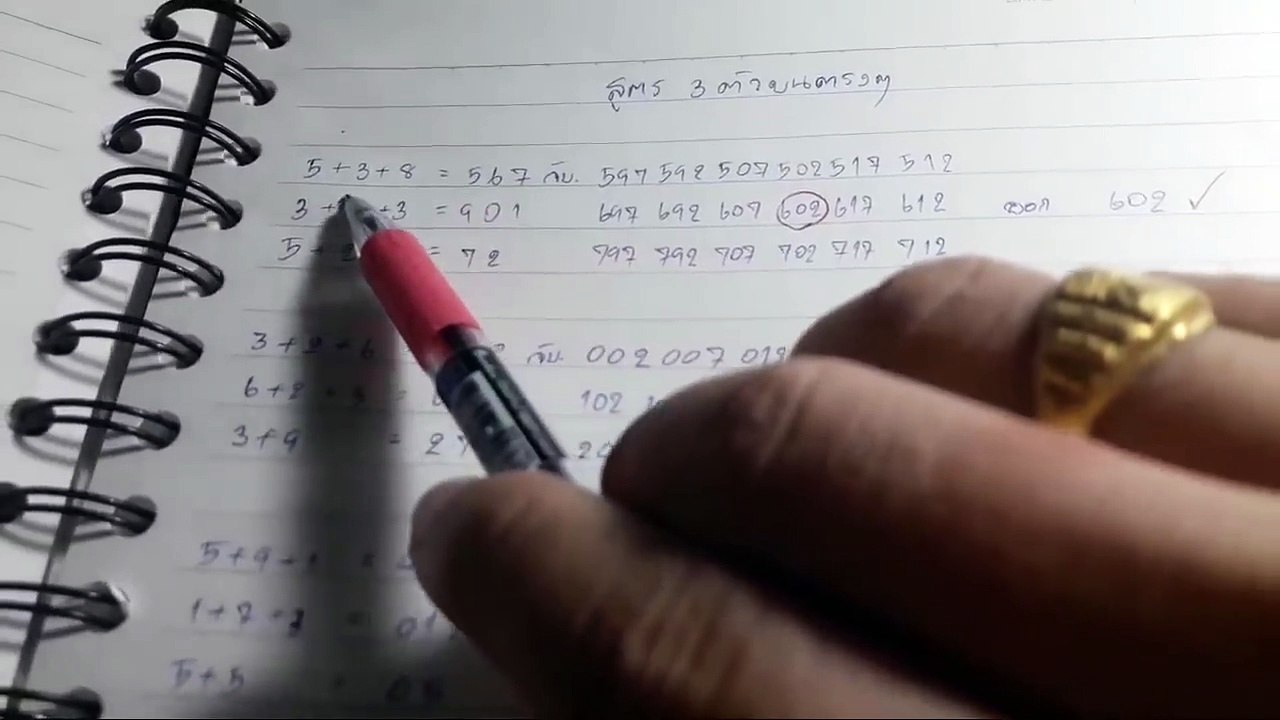 สูตร 3 ตัวบนตรงๆ
5 + 3 + 8 = 567 จับ. 597 592 507 502 517 512
3 + + 3 = 901 697 692 607 602 617 612 ออก 602 ✓
5 + 2 = 72 797 792 707 702 717 712
3 + 2 + 6 จับ. 002 007 012
6 + 2 + 3 = 102
3 + 9 = 2 20
5 + 9 + 1 =
1 + 7 + 3 = 01
5 + 5 = 05